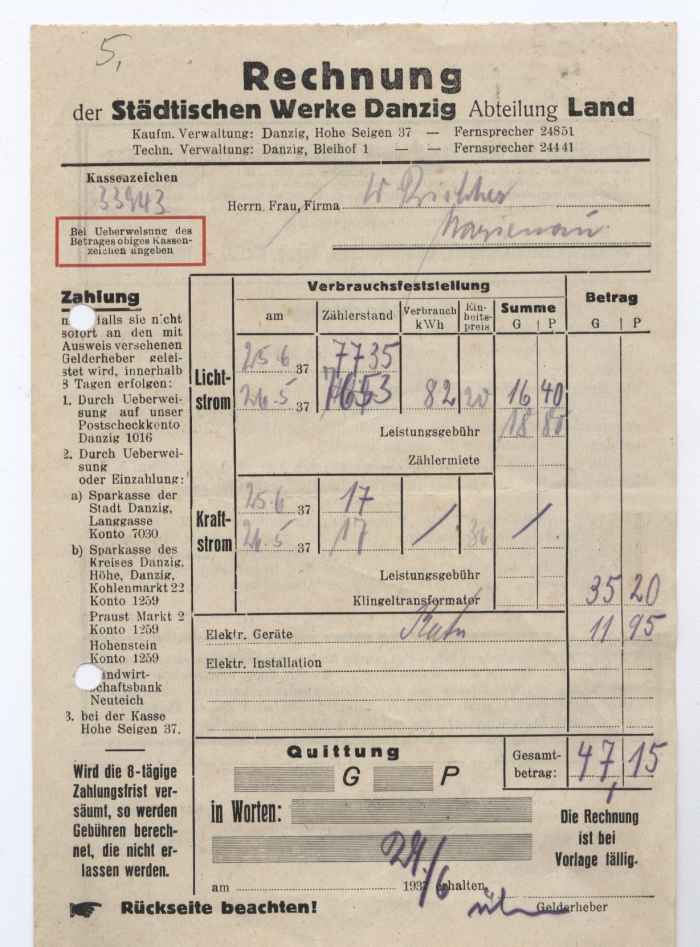 5,
Rechnung
der Städtischen Werke Danzig Abteilung Land
Kaufm. Verwaltung: Danzig, Hohe Seigen 37 — Fernsprecher 24851
Techn. Verwaltung: Danzig, Bleihof 1 — — Fernsprecher 24441
Kassenzeichen
33943
Herrn, Frau, Firma W
Bei Ueberweisung des
Betrages obiges Kassen-
zeichen angeben
Zahlung
falls sie nicht
sofort an den mit
Ausweis versehenen
Gelderheber gelei-
stet wird, innerhalb
8 Tagen erfolgen:
1. Durch Ueberwei-
sung auf unser
Postscheckkonto
Danzig 1016
2. Durch Ueberwei-
sung
oder Einzahlung:
a) Sparkasse der
Stadt Danzig,
Langgasse
Konto 7030
b) Sparkasse des
Kreises Danzig,
Höhe, Danzig,
Kohlenmarkt 22
Konto 1259
Praust Markt 2
Konto 1259
Hohenstein
Konto 1259
andwirt-
chaftsbank
Neuteich
3. bei der Kasse
Hohe Seigen 37.
Wird die 8-tägige
Zahlungsfrist ver-
säumt, so werden
Gebühren berech-
net, die nicht er-
lassen werden.
Verbrauchsfeststellung
Betrag
am Zählerstand Verbrauch kWh Ein-heits-preis Summe G P G P
Licht-
strom
25.6 37 7735
26.5 37 7653 82 20 16 40
Leistungsgebühr 18 80
Zählermiete
Kraft-
strom
25.6 37 17
26.5 37 17 / 36 /
Leistungsgebühr
Klingeltransformator 35 20
Elektr. Geräte Rate 11 95
Elektr. Installation
Quittung
G P
Gesamt-
betrag: 47,15
in Worten:
Die Rechnung
ist bei
Vorlage fällig.
29/6
am 1937 erhalten.
Gelderheber
Rückseite beachten!